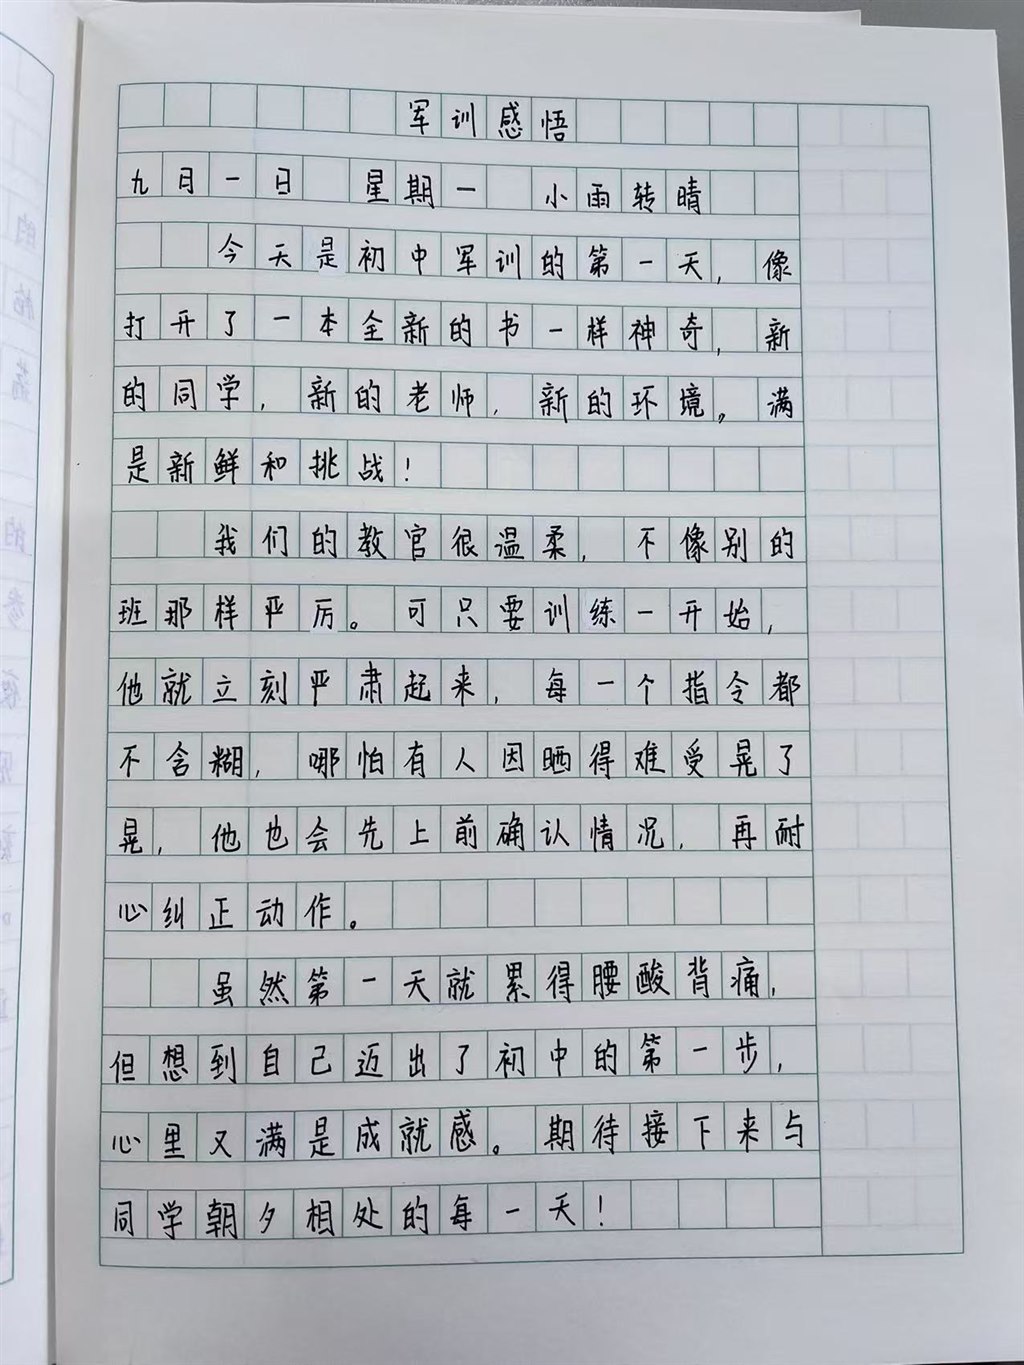 军训感悟
九月一日 星期一 小雨转晴
今天是初中军训的第一天，像
打开了一本全新的书一样神奇，新
的同学，新的老师，新的环境。满
是新鲜和挑战！
我们的教官很温柔，不像别的
班那样严厉。可只要训练一开始，
他就立刻严肃起来，每一个指令都
不含糊，哪怕有人因晒得难受晃了
晃，他也会先上前确认情况，再耐
心纠正动作。
虽然第一天就累得腰酸背痛，
但想到自己迈出了初中的第一步，
心里又满是成就感。期待接下来与
同学朝夕相处的每一天！